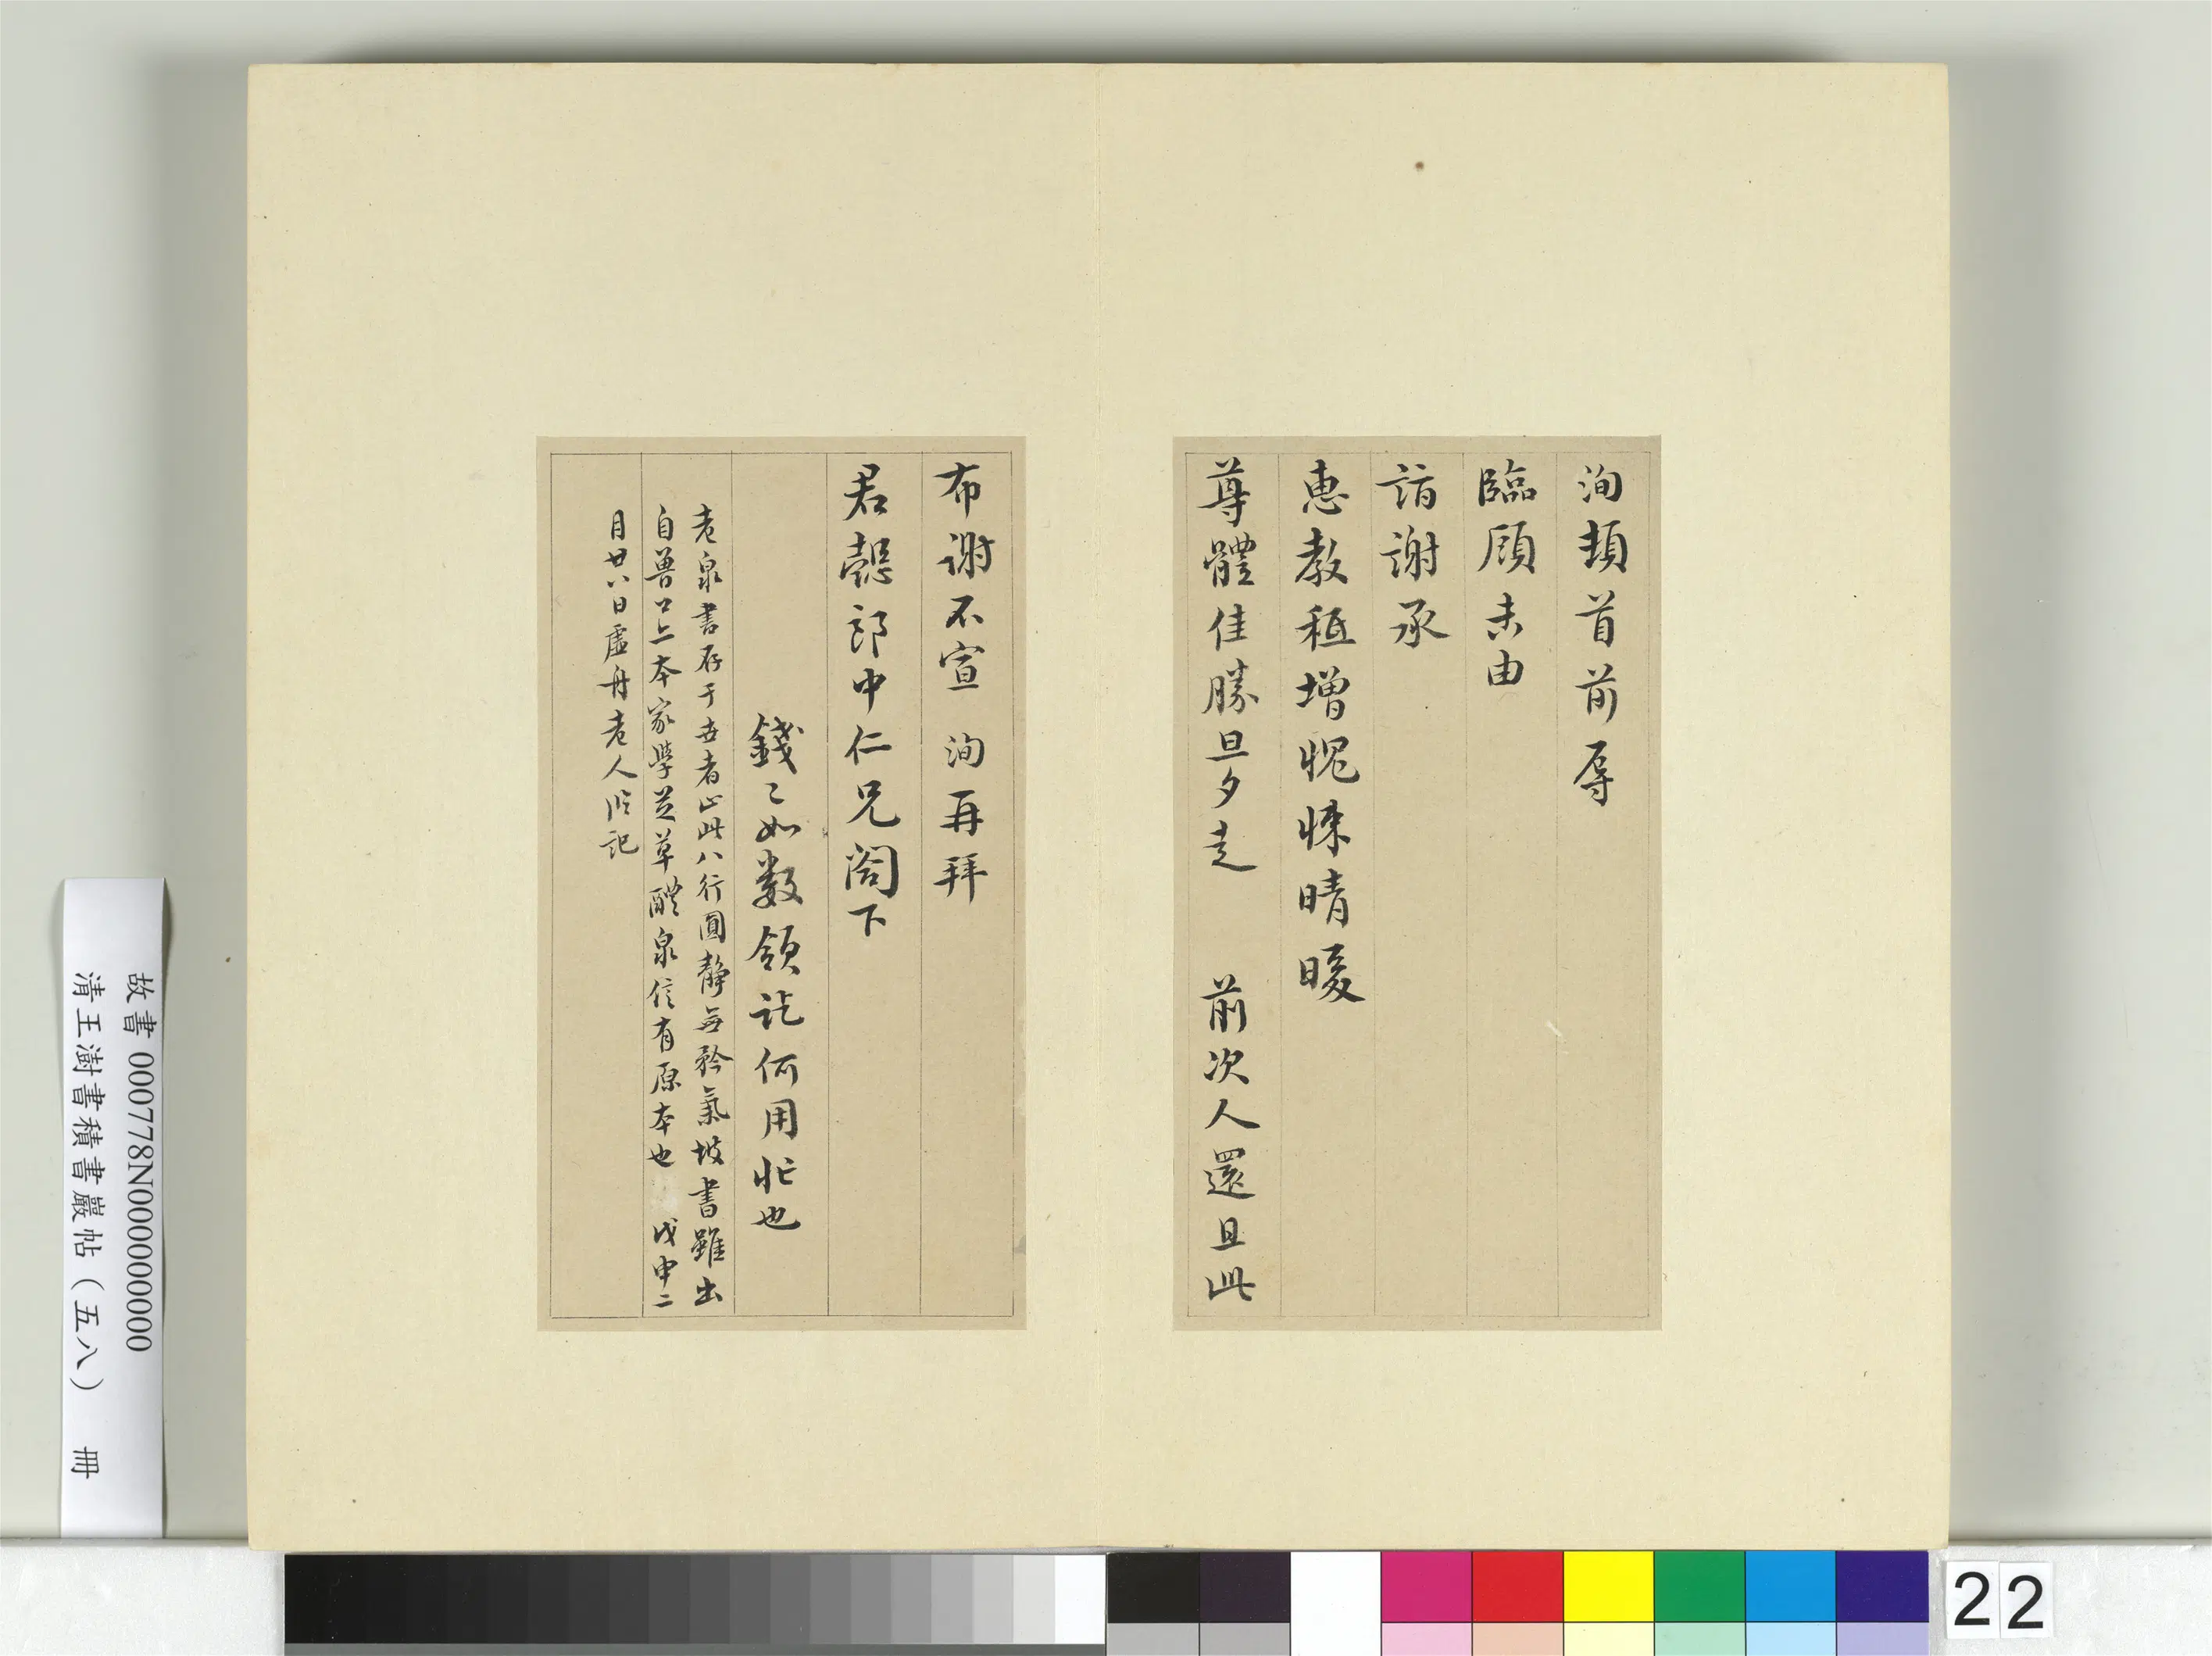 洵頓首前辱
臨顧未由
詣謝承
惠教秪增愧悚晴暖
尊體佳勝旦夕走 前次人還且此
布謝不宣 洵再拜
君懿郎中仁兄閤下
錢〻如数領訖何用忙也
老泉書存于世者止此八行圓静無矜氣坡書雖出
自魯公亦本家學芝草醴泉信有原本也 戊申二
月廿八日虛舟老人臨記
故書 000778N000000000
清王澍書積書巖帖（五八） 冊
22